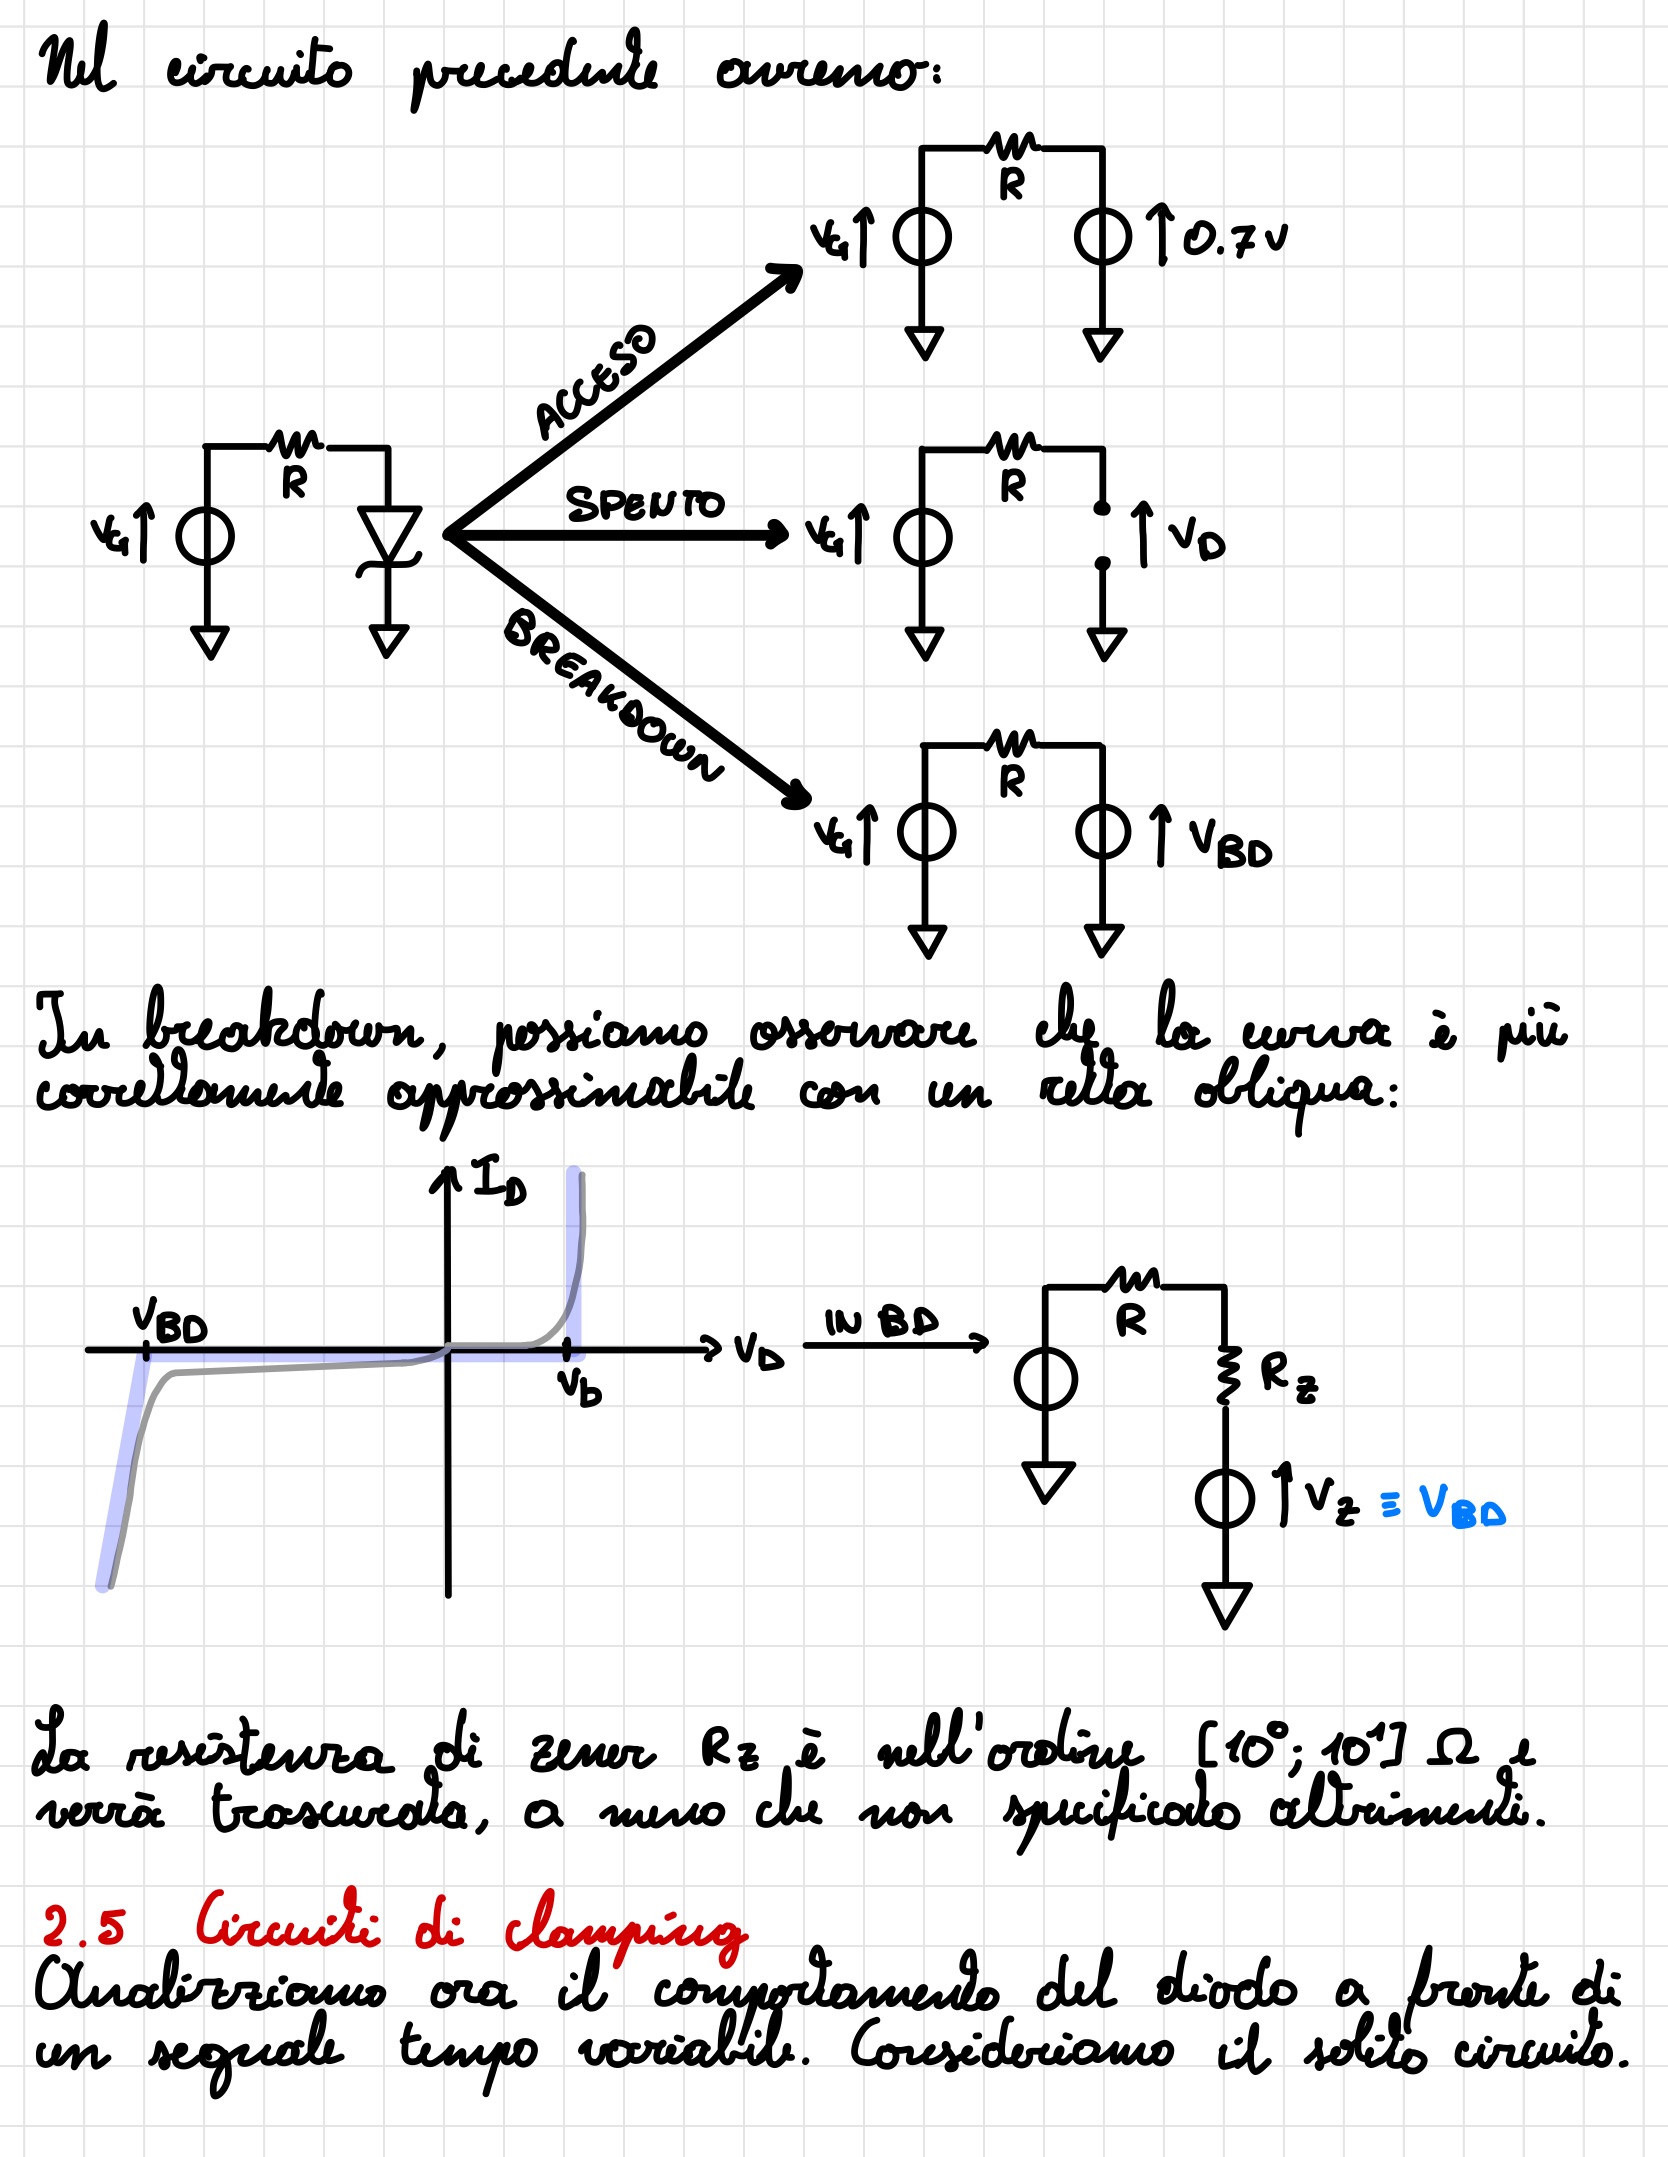 Nel circuito precedente avremo:
R
VG
0.7 V
ACCESO
R
VG
SPENTO
R
VG
VD
BREAKDOWN
R
VG
VBD
In breakdown, possiamo osservare che la curva è più
correttamente approssimabile con un retta obliqua:
ID
VBD
VD
VD
IN BD
R
RZ
VZ ≡ VBD
La resistenza di zener RZ è nell'ordine [10⁰; 10¹] Ω e
verrà trascurata, a meno che non specificato altrimenti.
2.5 Circuiti di clamping
Analizziamo ora il comportamento del diodo a fronte di
un segnale tempo variabile. Consideriamo il solito circuito.